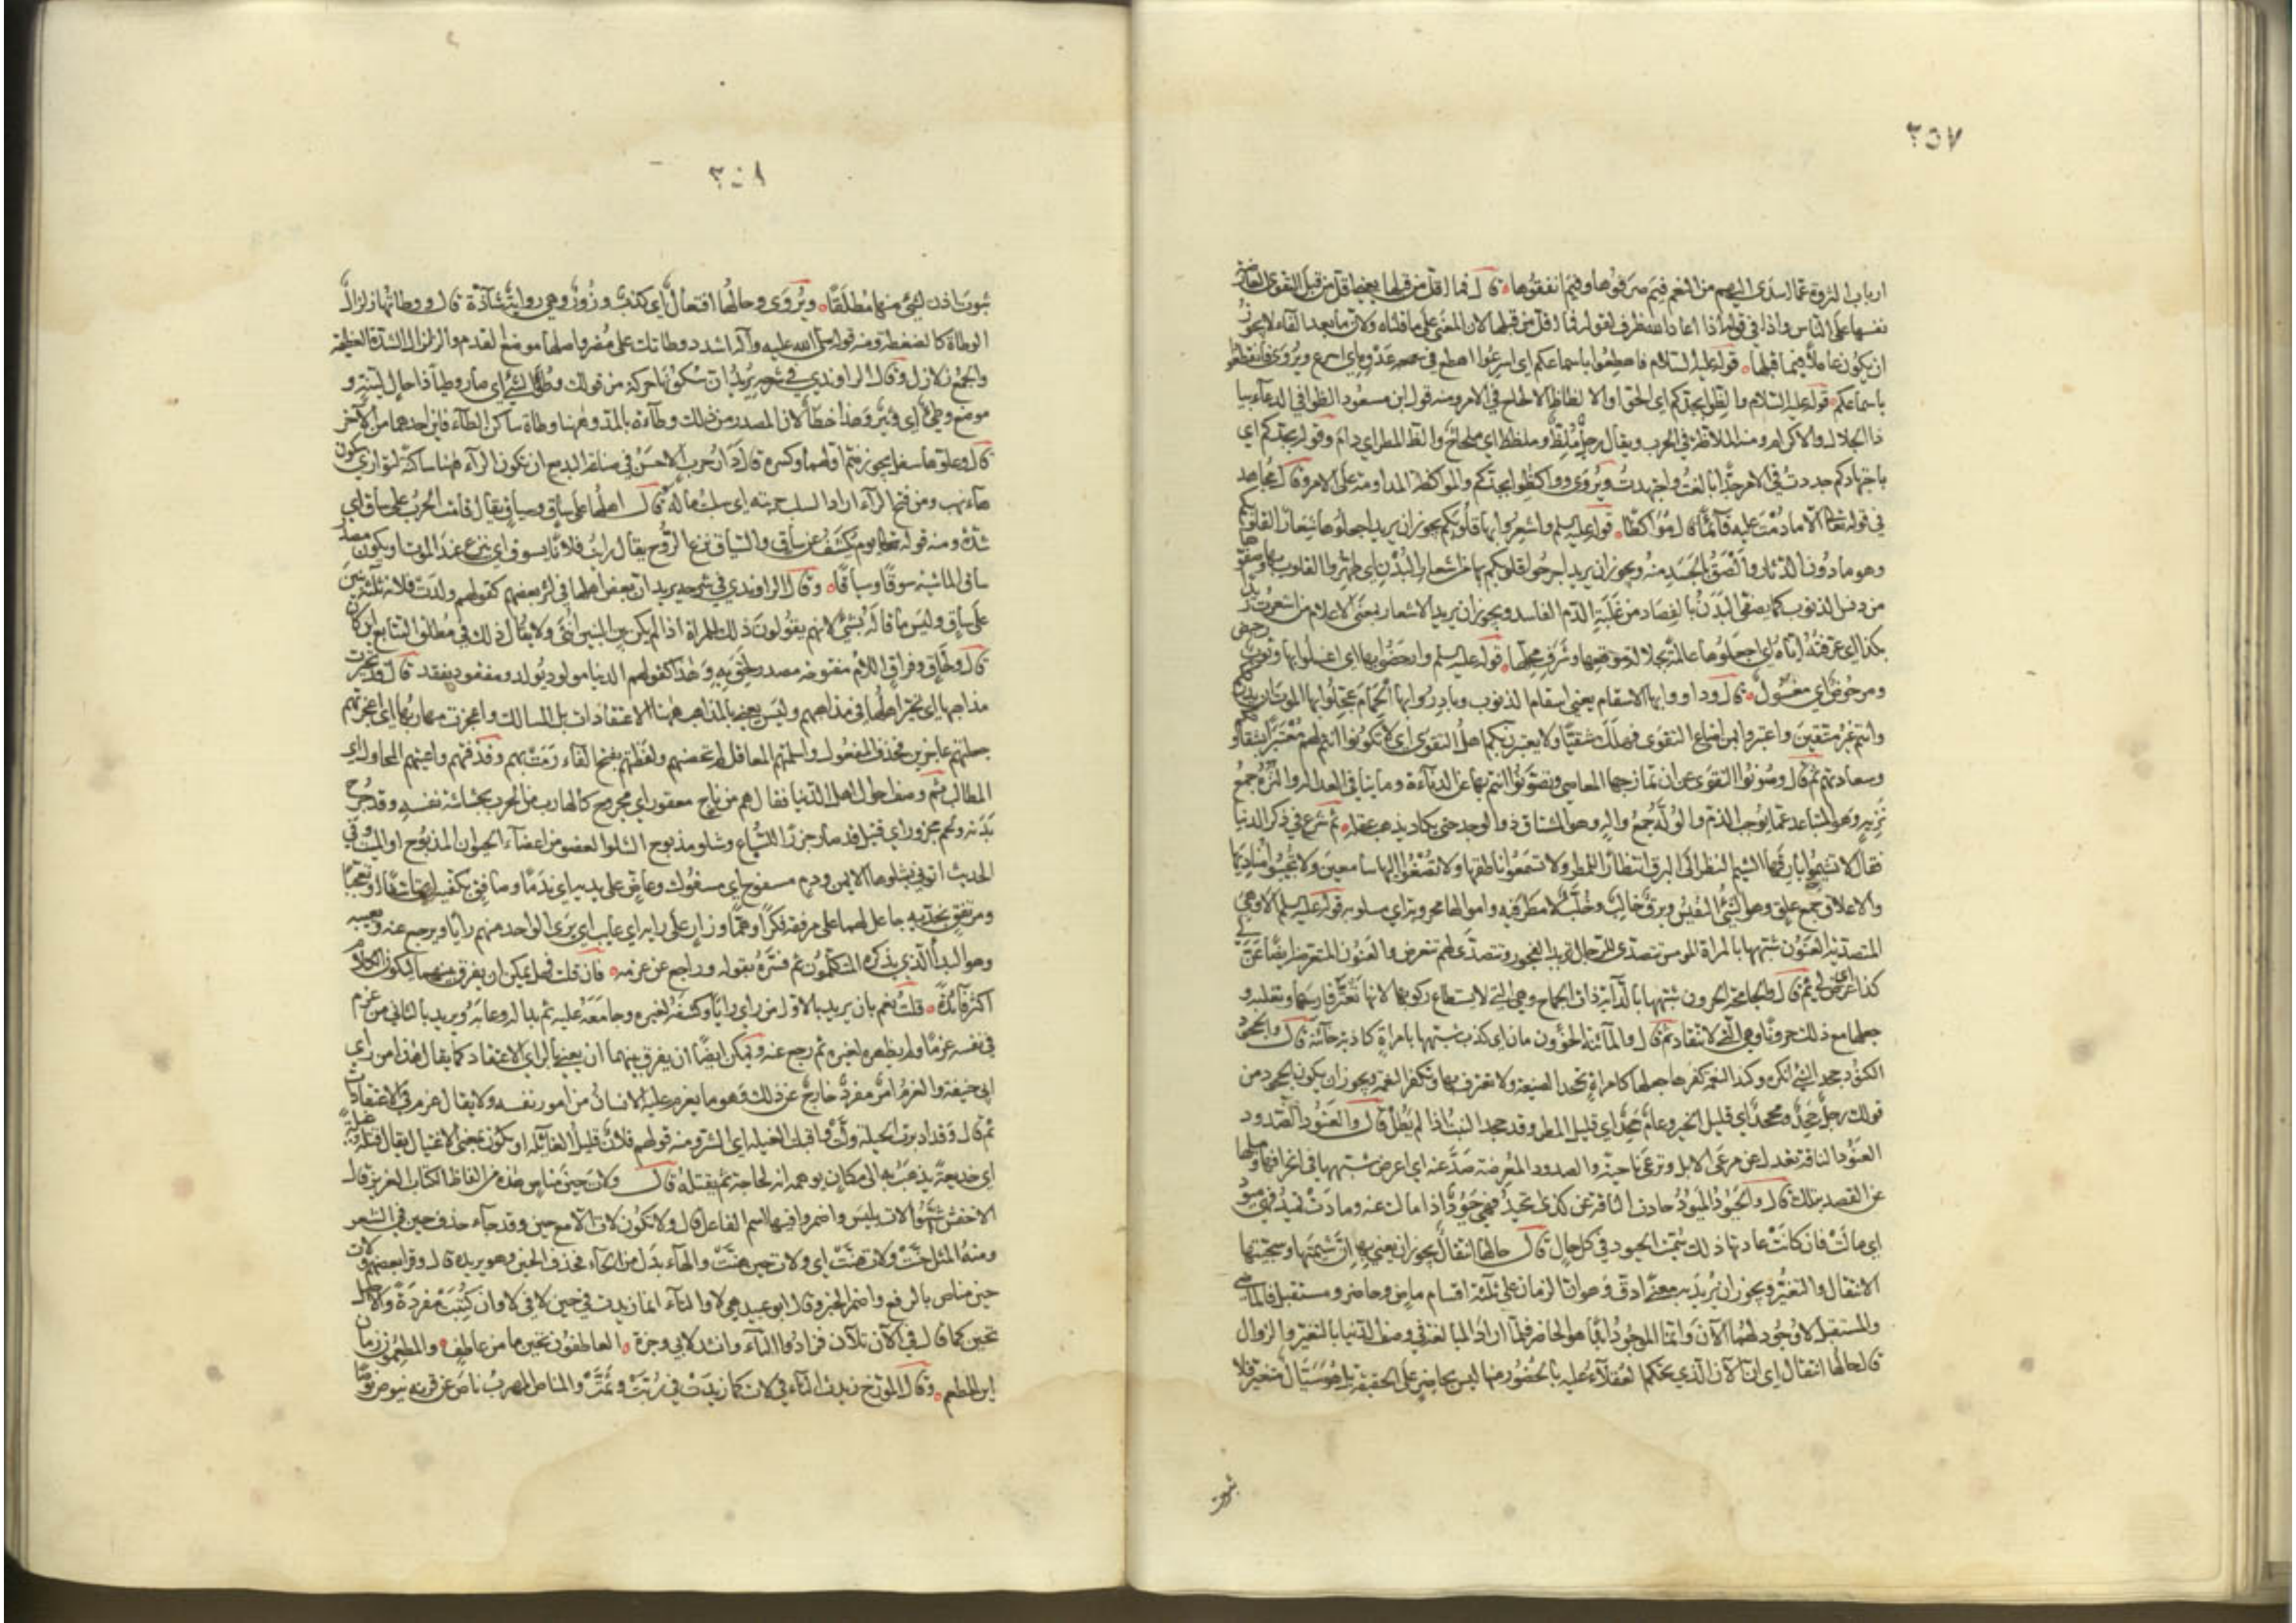 ٢٥٧
ارباب الثروة عما اسدى اليهم من النعم فيم صرفوها وفيم انفقوها قال فما اقل من قبلها يعني ما اقل من قبل التقوى العارضة
نفسها على الناس واذا في قوله اذا اعاد الله ظرف لقوله فما اقل من قبلها لان المعنى على ما قلناه ولان ما بعد الفاء لا يجوز
ان يكون عاملا فيما قبلها قوله عليه السلام فاهطعوا باسماعكم اي اسرعوا اهطع في عدوه اي اسرع ويروى فانقطعوا
باسماعكم قوله عليه السلام والظوا بجدكم اي الحوا والالظاظ الالحاح في الامر ومنه قول ابن مسعود الظوا في الدعاء بيا
ذا الجلال والاكرام ومنه الملاظة في الحرب ويقال رجل ملظ وملظظ اي ملحاح والظ المطر اي دام وقوله بجدكم اي
باجتهادكم جددت في الامر جدا بالغت واجتهدت ويروى وواكظوا بجدكم والمواكظة المداومة على الامر وقال مجاهد
في قوله تعالى الا ما دمت عليه قائما قال اي مواكظا قوله عليه السلم واشعروا بها قلوبكم يجوز ان يريد اجعلوها شعارا لقلوبكم
وهو ما دون الدثار والصق بالجسد منه ويجوز ان يريد اجرحوا قلوبكم بها من اشعار البدن اي طهروا القلوب بها وصفوها
من دنس الذنوب كما يصفى البدن بالفصاد من غلبة الدم الفاسد ويجوز ان يريد الاشعار بمعنى الاعلام من اشعرت زيدا
بكذا اي عرفته اياه اي اجعلوها عالمة بجلالة موقعها وشرف محلها قوله عليه السلم وارحضوا بها اي اغسلوا بها وثوب رحيض
ومرحوض اي مغسول قال وداووا بها الاسقام يعني اسقام الذنوب وبادروا بها الحمام عجلوا بها الموت ان يدرككم
وانتم غير متقين واعتبروا بمن اضاع التقوى فهلك شقيا ولا يعتبرن بكم اهل التقوى اي لا تكونوا انتم لهم معتبرا بشقاوتكم
وسعادتهم ثم قال وصونوا التقوى عن ان تمازجها المعاصي وتصونوا انتم بها عن الدناءة وما ينافي العدالة والنزه جمع
نزيه وهو المتباعد عما يوجب الذم والوله جمع واله وهو المشتاق ذو الوجد حتى يكاد يذهب عقله ثم شرع في ذكر الدنيا
فقال لا تشيموا بارقها الشيم النظر الى البرق انتظارا للمطر ولا تسمعوا ناطقها ولا تصغوا اليها سامعين ولا تجيبوا مناديها
والاعلاق جمع علق وهو الشيء النفيس وبرق خالب وخلب لا مطر فيه واموالها محروبة اي مسلوبة قوله عليه السلم الا وهي
المتصدية العنون شبهها بالمرأة المومس تتصدى للرجال تريد الفجور وتتصدى لهم تتعرض والعنون المتعرضة ايضا عن لي
كذا اي عرض لي ثم قال والجامحة الحرون شبهها بالدابة ذات الجماح وهي التي لا يستطاع ركوبها لانها تعثر فارسها وتغلبه و
جعلها مع ذلك حرونا وهي التي لا تنقاد ثم قال والمائنة الخؤون مان اي كذب شبهها بامرأة كاذبة خائنة قال والجحود
الكنود جحد الشيء انكره وكند النعمة كفرها جعلها كامرأة تجحد الصنيعة ولا تعترف بها وتكفر النعمة ويجوز ان يكون الجحود من
قولك رجل جحد ومجحد اي قليل الخير وعام جحد اي قليل المطر وقد جحد النبت اذا لم يطل قال والعنود الصدود
العنود الناقة تعدل عن مرعى الابل وترعى ناحية والصدود المعرضة صد عنه اي اعرض شبهها في انحرافها وميلها
عن القصد بتلك قال والحيود الميود حادت الناقة عن كذا تحيد فهي حيود اذا مالت عنه ومادت تميد فهي ميود
اي مالت فان كانت عادتها ذلك سميت الحيود في كل حال قال حالها انتقال يجوز ان يعني به ان شيمتها وسجيتها
الانتقال والتغير ويجوز ان يريد به معنى ادق وهو ان الزمان على ثلثة اقسام ماض وحاضر ومستقبل فالماضي
والمستقبل لا وجود لهما الآن وانما الموجود ابدا هو الحاضر فلما اراد المبالغة في وصف الدنيا بالتغير والزوال
قال حالها انتقال اي ان الآن الذي يحكم العقلاء عليه بالحضور منها ليس بحاضر على الحقيقة بل هو سيال متغير فلا
ثبوت
٢٥٨
ثبوت اذن لشيء منها مطلقا ويروى وحالها افتعال اي كذب وزور وهي رواية شاذة قال ووطأتها زلزال
الوطأة كالضغطة ومنه قوله صلى الله عليه وآله اشدد وطأتك على مضر واصلها موضع القدم والزلزال الشدة العظيمة
والجمع زلازل وقال الراوندي في شرحه يريد ان سكونها حركة من قولك وطؤ الشيء اي صار وطيئا ذا حال لينة و
موضع وطيء اي وثير وهذا خطأ لان المصدر من ذلك وطاءة بالمد وههنا وطأة ساكن الطاء فاين احدهما من الآخر
قال وعلوها سفل يجوز ضم اولهما وكسره قال دار حرب الاحسن في صناعة البديع ان تكون الراء ههنا ساكنة لتوازي سكون
هاء نهب ومن فتح الراء اراد السلب حربته اي سلبت ماله قال اهلها على ساق وسياق يقال قامت الحرب على ساق اي
شدة ومنه قوله تعالى يوم يكشف عن ساق والسياق نزع الروح يقال رأيت فلانا يسوق اي ينزع عند الموت او يكون مصدر
ساق الماشية سوقا وسياقا وقال الراوندي في شرحه يريد ان بعض اهلها في اثر بعض كقولهم ولدت فلانة ثلثة بنين
على ساق وليس ما قاله بشيء لانهم يقولون ذلك للمرأة اذا لم يكن بين البنين انثى ولا يقال ذلك في مطلق التتابع اين كان
قال ولحاق وفراق اللام مفتوحة مصدر لحق به وهذا كقولهم الدنيا مولود يولد ومفقود يفقد قال قد تحيرت
مذاهبها اي تحير اهلها في مذاهبهم وليس يعني بالمذاهب ههنا الاعتقادات بل المسالك واعجزت مهاربها اي اعجزتهم
جعلتهم عاجزين فحذف المفعول واسلمتهم المعاقل لم تحصنهم ولفظتهم بفتح الفاء رمت بهم وقذفتهم واعيتهم المحاول اي
المطالب ثم وصف احوال اهل الدنيا فقال هم من ناج معقور اي مجروح كالهارب من الحرب بحشاشة نفسه وقد جرح
بدنه ولحم مجزور اي قتيل قد صار جزرا للسباع وشلو مذبوح الشلو العضو من اعضاء الحيوان المذبوح او الميت وفي
الحديث ائتوني بشلوها الايمن ودم مسفوح اي مسفوك وعاض على يديه اي ندما وصافق بكفيه اي تاسفا او تعجبا
ومرتفق بخديه جاعل لهما على مرفقه فكرا وهما وزار على رأيه اي عائب اي يرى الواحد منهم رأيا ويرجع عنه ويعيبه
وهو البداء الذي يذكره المتكلمون ثم فسره بقوله وراجع عن عزمه فان قلت فهل يمكن ان يفرق بينهما ليكون الكلام
اكثر فائدة قلت نعم بان يريد بالاول من رأى رأيا وكشفه لغيره وجامعه عليه ثم بدا له وعابه ويريد بالثاني من عزم
في نفسه عزما ولم يظهره لغيره ثم رجع عنه ويمكن ايضا ان يفرق بينهما ان يعني بالرأي الاعتقاد كما يقال هذا من رأي
ابي حنيفة والعزم امر مفرد خارج عن ذلك وهو ما يعزم عليه الانسان من امور نفسه ولا يقال عزم في الاعتقادات
ثم قال وقد ادبرت الحيلة ولت واقبلت الغيلة اي الشر ومنه قولهم فلان قليل الغائلة او يكون بمعنى الاغتيال يقال قتله غيلة
اي خديعة يذهب به الى مكان يوهمه انه لحاجة ثم يقتله قال ولات حين مناص هذه من الفاظ الكتاب العزيز قال
الاخفش شبهوا لات بليس واضمروا فيها اسم الفاعل قال ولا تكون لات الا مع حين وقد جاء حذف حين في الشعر
ومنه المثل حنت ولات هنت اي ولات حين حنت والهاء بدل من الحاء فحذف الحين وهو يريده قال وقرأ بعضهم ولات
حين مناص بالرفع واضمر الخبر وقال ابو عبيد هي لا والتاء انما زيدت في حين لا في لا وان كتبت مفردة والاصل
تحين كما قال في الآن تلآن فزادوا التاء وانشد لابي وجزة العاطفون تحين ما من عاطف والمطعمون زمان
اين المطعم وقال المؤرخ زيدت التاء في لات كما زيدت في ربت وثمت والمناص المهرب ناص عن قرنه ينوص نوصا